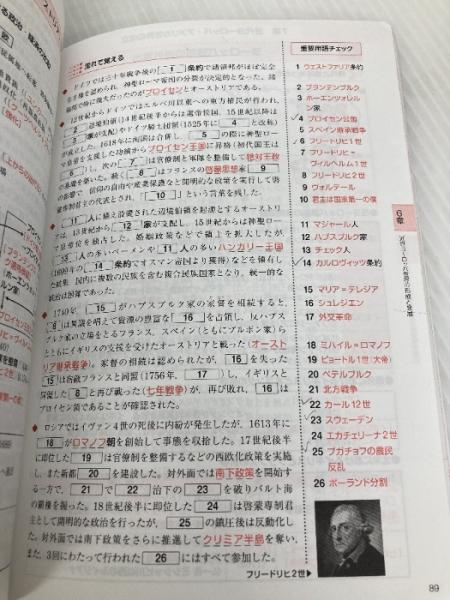 流れで覚える
ドイツでは三十年戦争後の 1 条約で諸領邦がほぼ完全
な主権を認められ、神聖ローマ帝国の分裂が決定的となった。
12世紀からドイツではエルベ川以東への東方植民が行われ、
2 辺境伯領(14世紀後半からは選帝侯国、15世紀以降は
3 家が支配)やドイツ騎士団領(1525年に 4 と改称)
が成立した。1618年に両国は合併し、 5 の際に神聖ロー
マ皇帝を支援した功績からプロイセン王国に昇格(初代国王は
6 )。次の 7 は官僚制と軍隊を整備して絶対王政
の基礎を築いた。続く 8 はフランスの啓蒙思想家 9
の影響で、信仰の自由や産業保護など開明的な政策を実行して啓
蒙専制君主の代表とされ、「 10 」という言葉を残した。
11 人に備え設置された辺境伯領を起源とするオーストリ
アでは、13世紀から 12 家が支配し、15世紀からは神聖ロー
マ皇帝位を独占した。婚姻政策などで領土を拡大したが、
13 人の多いベーメンや 11 人の多いハンガリー王国
(1699年の 14 条約でオスマン帝国より獲得)などを領有し
た結果、国内に複数の民族を含む複合民族国家となり、統一的な
統治は困難であった。
1740年、 15 がハプスブルク家の家督を相続すると、
8 は異議を唱えて資源の豊富な 16 を占領し、反ハプス
ブルク家の立場をとるフランス、スペイン(ともにブルボン家)ら
とともにイギリスの支援を受けたオーストリアと戦った(オースト
リア継承戦争)。家督の相続は認められたが、 16 を失った
15 は宿敵フランスと同盟(1756年、 17 )し、イギリスと
同盟した 8 と再び戦った(七年戦争)が、再び敗れ、 16 は
プロイセン領であることが確認された。
ロシアではイヴァン4世の死後に内紛が発生したが、1613年に
18 がロマノフ朝を創始して事態を収拾した。17世紀後半
に即位した 19 は官僚制を整備するなどの西欧化政策を実施
し、また新都 20 を建設した。対外面では南下政策を開始す
る一方で、 21 で 22 治下の 23 を破りバルト海
の覇権を握った。18世紀後半に即位した 24 は啓蒙専制君
主として開明的な政治を行ったが、 25 の鎮圧後は反動化し
た。対外面では南下政策をさらに推進してクリミア半島を奪い、
また、3回にわたって行われた 26 にはすべて参加した。
重要用語チェック
1 ウェストファリア条約
2 ブランデンブルク
3 ホーエンツォレル
ン家
4 プロイセン公国
5 スペイン継承戦争
6 フリードリヒ1世
7 フリードリヒ=
ヴィルヘルム1世
8 フリードリヒ2世
9 ヴォルテール
10 君主は国家第一の僕
11 マジャール人
12 ハプスブルク家
13 チェック人
14 カルロヴィッツ条約
15 マリア=テレジア
16 シュレジエン
17 外交革命
18 ミハイル=ロマノフ
19 ピョートル1世(大帝)
20 ペテルブルク
21 北方戦争
22 カール12世
23 スウェーデン
24 エカチェリーナ2世
25 プガチョフの農民
反乱
26 ポーランド分割
フリードリヒ2世▶
6章
89